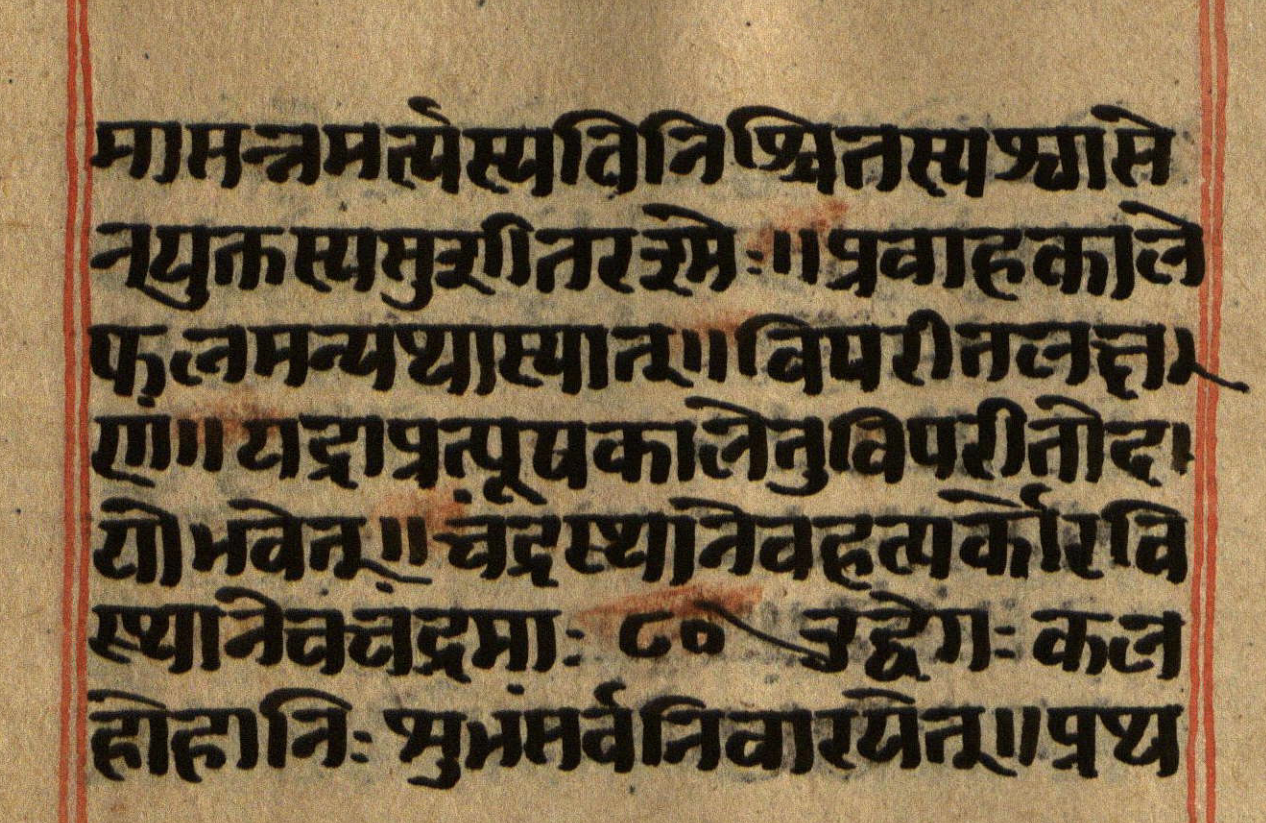 मासन्नमर्त्यस्यविनिश्चितस्यश्वासे
नयुक्तस्यसुशीतरश्मेः॥प्रवाहकाले
फलमन्यथास्यात्॥विपरीतलक्ष
णं॥यदाप्रत्पूषकालेतुविपरीतोद
योभवेत्॥चंद्रस्थानेवहत्यर्कोरवि
स्थानेचचंद्रमाः ८० उद्वेगः कल
होहानिः शुभंसर्वंनिवारयेत्॥प्रथ